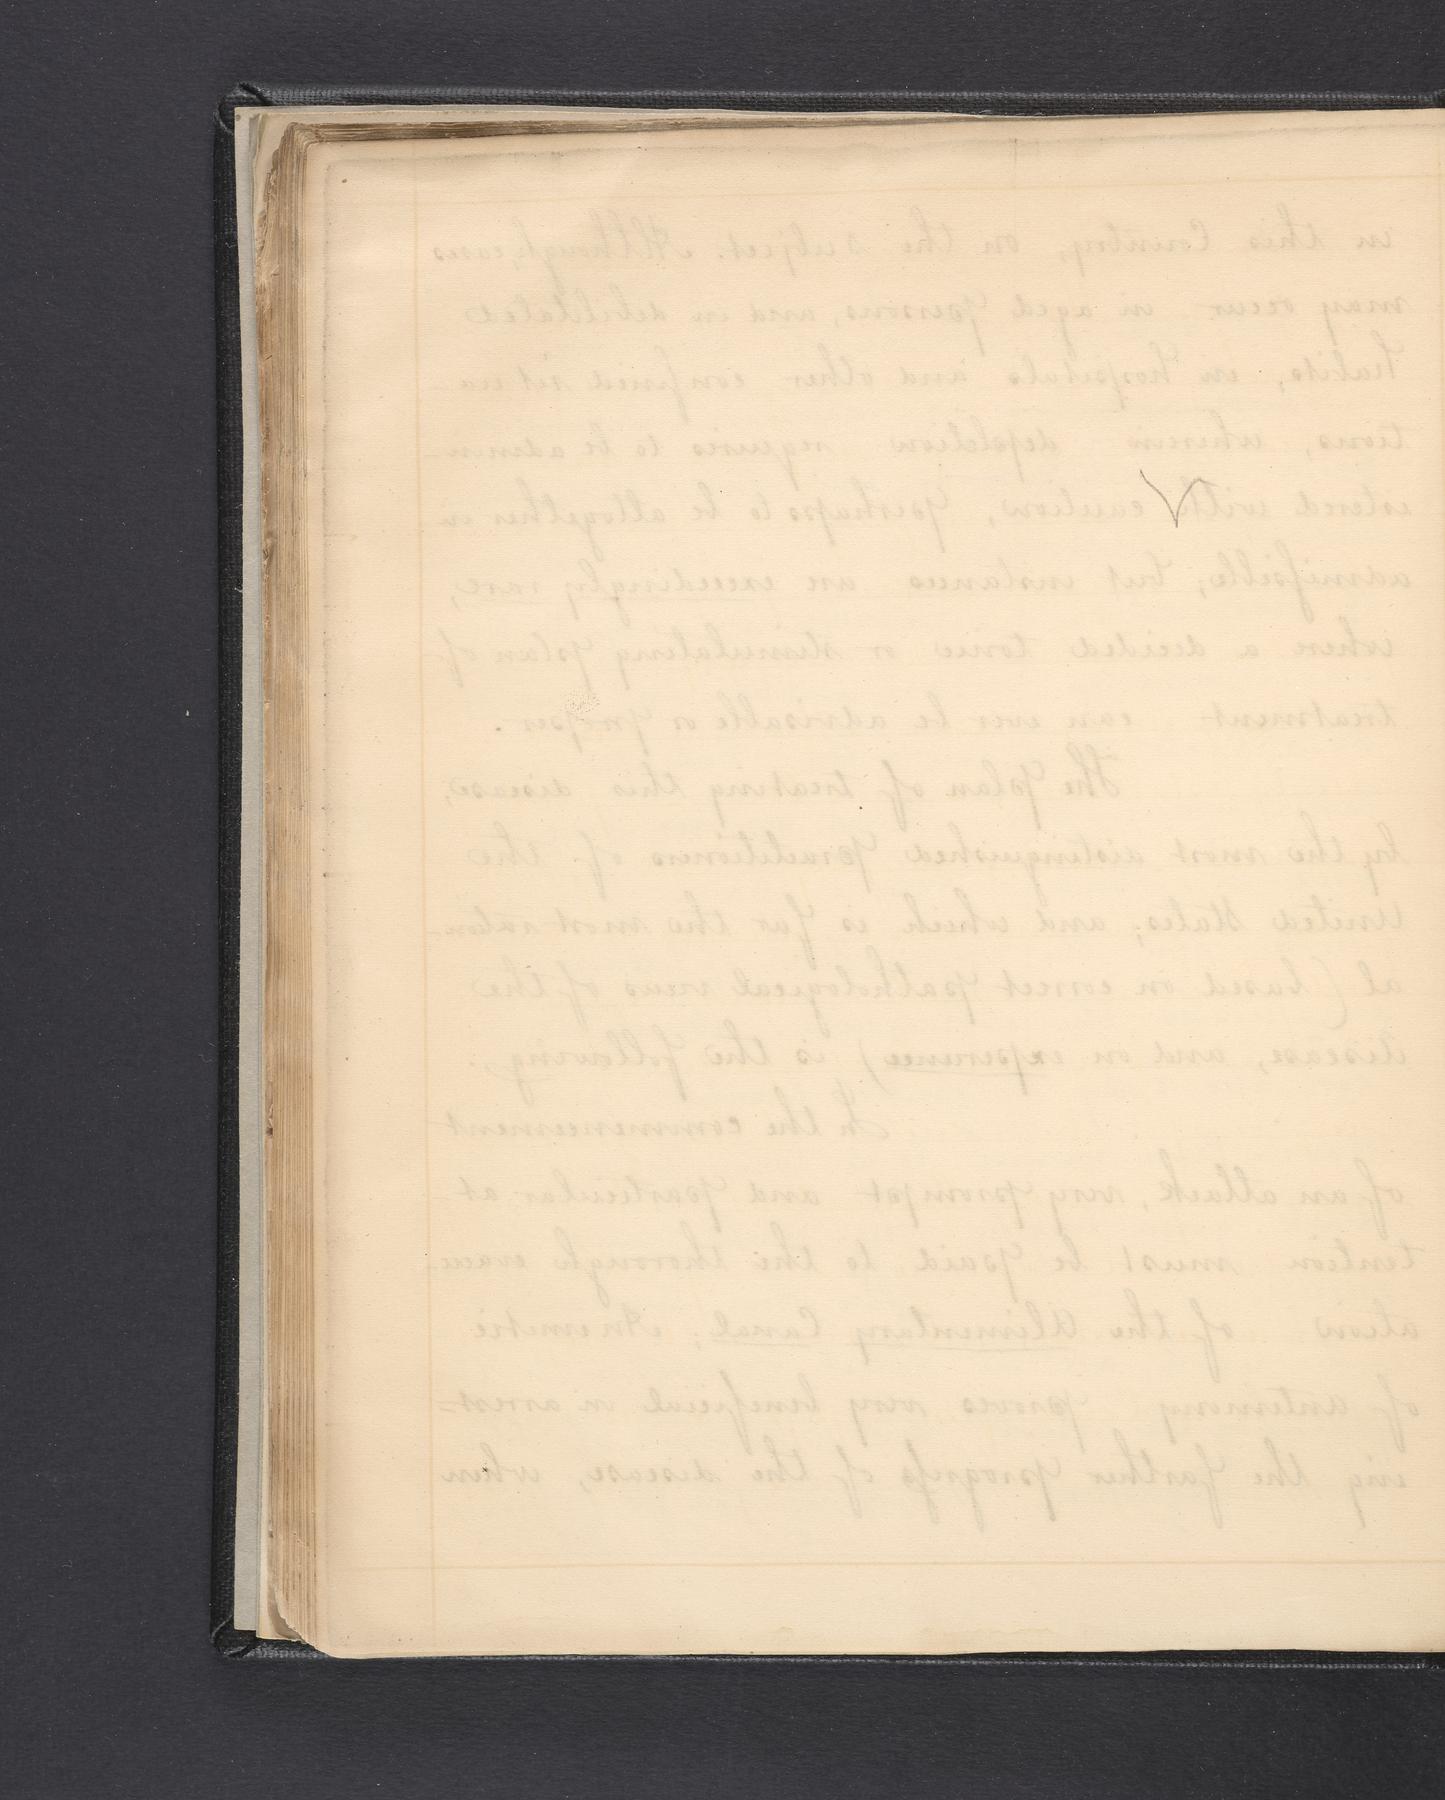 in this Country, on the subject. Although, cases
may occur in aged persons, and in debilitated
habits, in hospitals and other confined situa-
tions, wherein depletion requires to be admin-
istered with caution, perhaps to be altogether in-
admissible; but instances are exceedingly rare,
when a decided tonic or stimulating plan of
treatment can ever be advisable or proper.
The plan of treating this disease,
by the most distinguished practitioners of the
United States, and which is far the most ration-
al (based on correct pathological views of the
disease, and on experience) is the following;
In the commencement
of an attack, very prompt and particular at-
tention must be paid to the thorough evacu-
ation of the Alimentary Canal; An emetic
of antimony proves very beneficial in arrest=
ing the farther progress of the disease, when